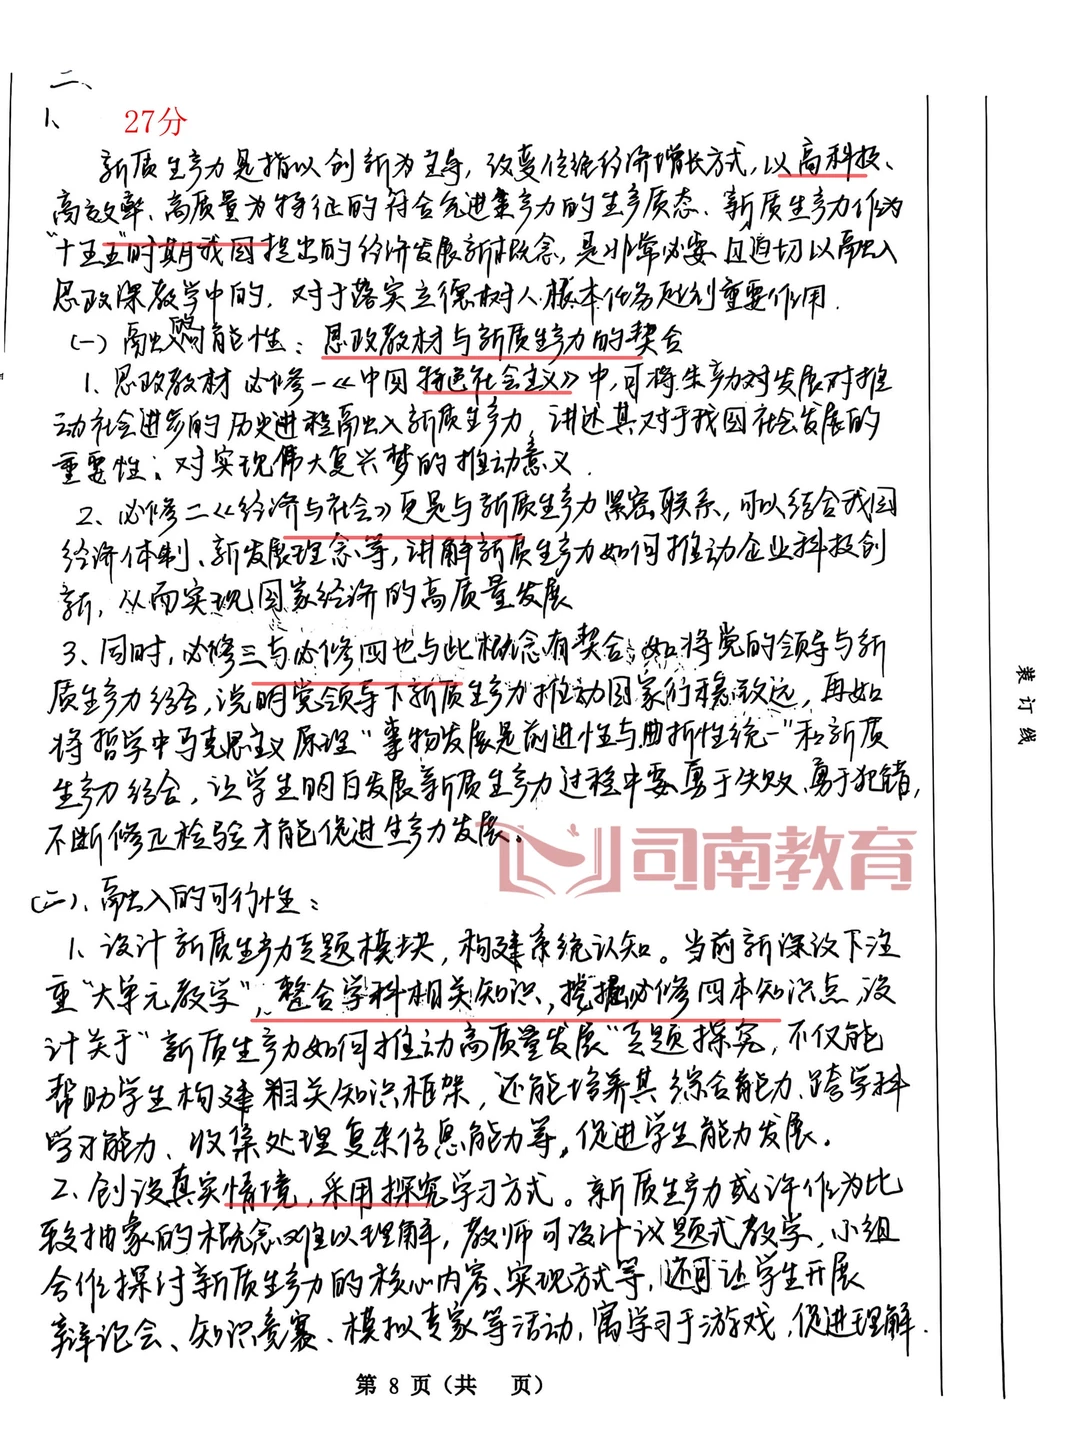 二、
1、 27分
新质生产力是指以创新为主导，改变传统经济增长方式，以高科技、
高效率、高质量为特征的符合先进生产力的生产质态。新质生产力作为
"十五五"时期我国提出的经济发展新概念，是非常必要且迫切以融入
思政课教学中的，对于落实立德树人根本任务起到重要作用．
(一)融入的可能性：思政教材与新质生产力的契合
1、思政教材必修一《中国特色社会主义》中，可将生产力对发展对推
动社会进步的历史进程融入新质生产力，讲述其对于我国社会发展的
重要性；对实现伟大复兴梦的推动意义．
2、必修二《经济与社会》更是与新质生产力紧密联系，可以结合我国
经济体制、新发展理念等，讲解新质生产力如何推动企业科技创
新，从而实现国家经济的高质量发展
3、同时，必修三与必修四也与此概念有契合；如将党的领导与新
质生产力结合，说明党领导下新质生产力推动国家行稳致远，再如
将哲学中马克思主义原理"事物发展是前进性与曲折性统一"和新质
生产力结合，让学生明白发展新质生产力过程中要勇于失败、勇于犯错，
不断修正检验才能促进生产力发展。
司南教育
(二)、融入的可行性：
1、设计新质生产力专题模块，构建系统认知。当前新课改下注
重"大单元教学"，整合学科相关知识，挖掘必修四本知识点，设
计关于"新质生产力如何推动高质量发展"专题探究，不仅能
帮助学生构建相关知识框架，还能培养其综合能力、跨学科
学习能力、收集处理复杂信息能力等，促进学生能力发展。
2、创设真实情境，采用探究学习方式。新质生产力或许作为比
较抽象的概念难以理解，教师可设计议题式教学，小组
合作探讨新质生产力的核心内容、实现方式等，还可让学生开展
辩论会、知识竞赛、模拟专家等活动，寓学习于游戏，促进理解．
第 8 页（共 页）
装订线